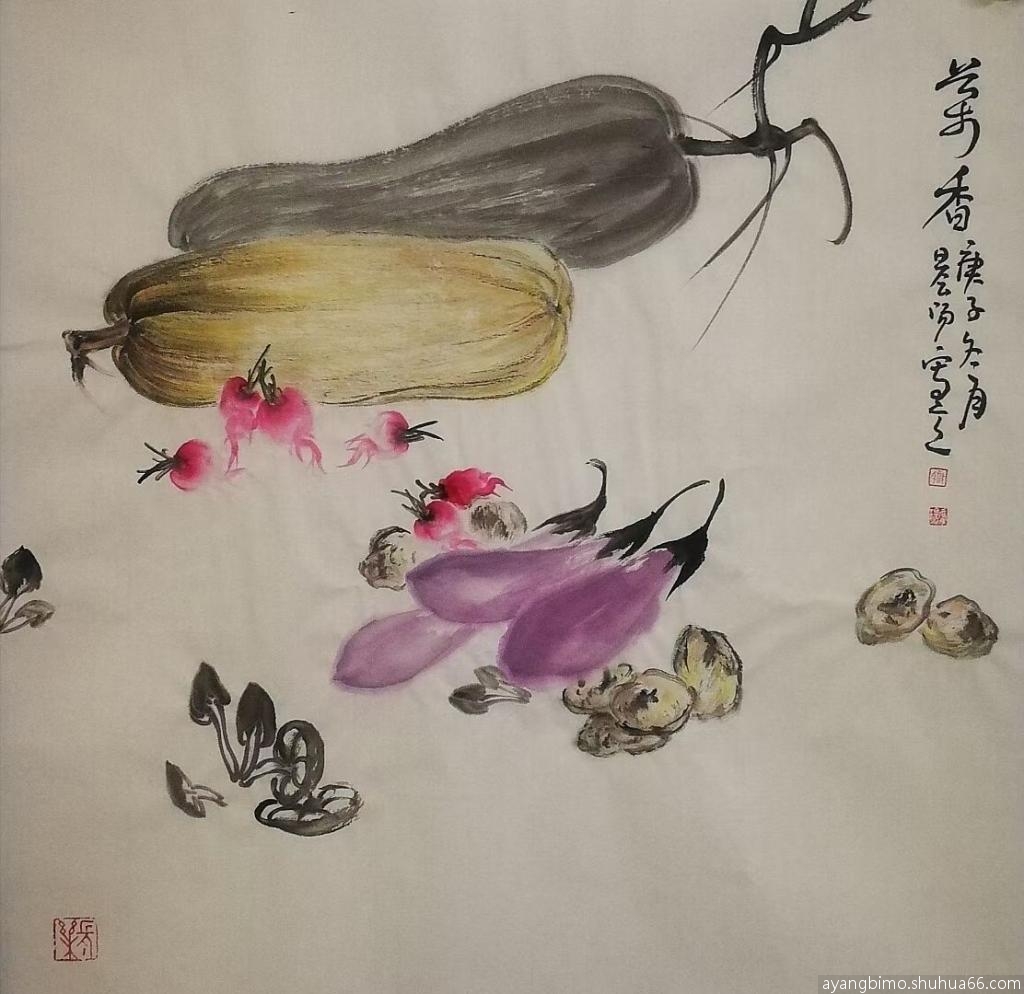 香
庚子冬月
晨阳写之
ayangbimo.shuhua66.com